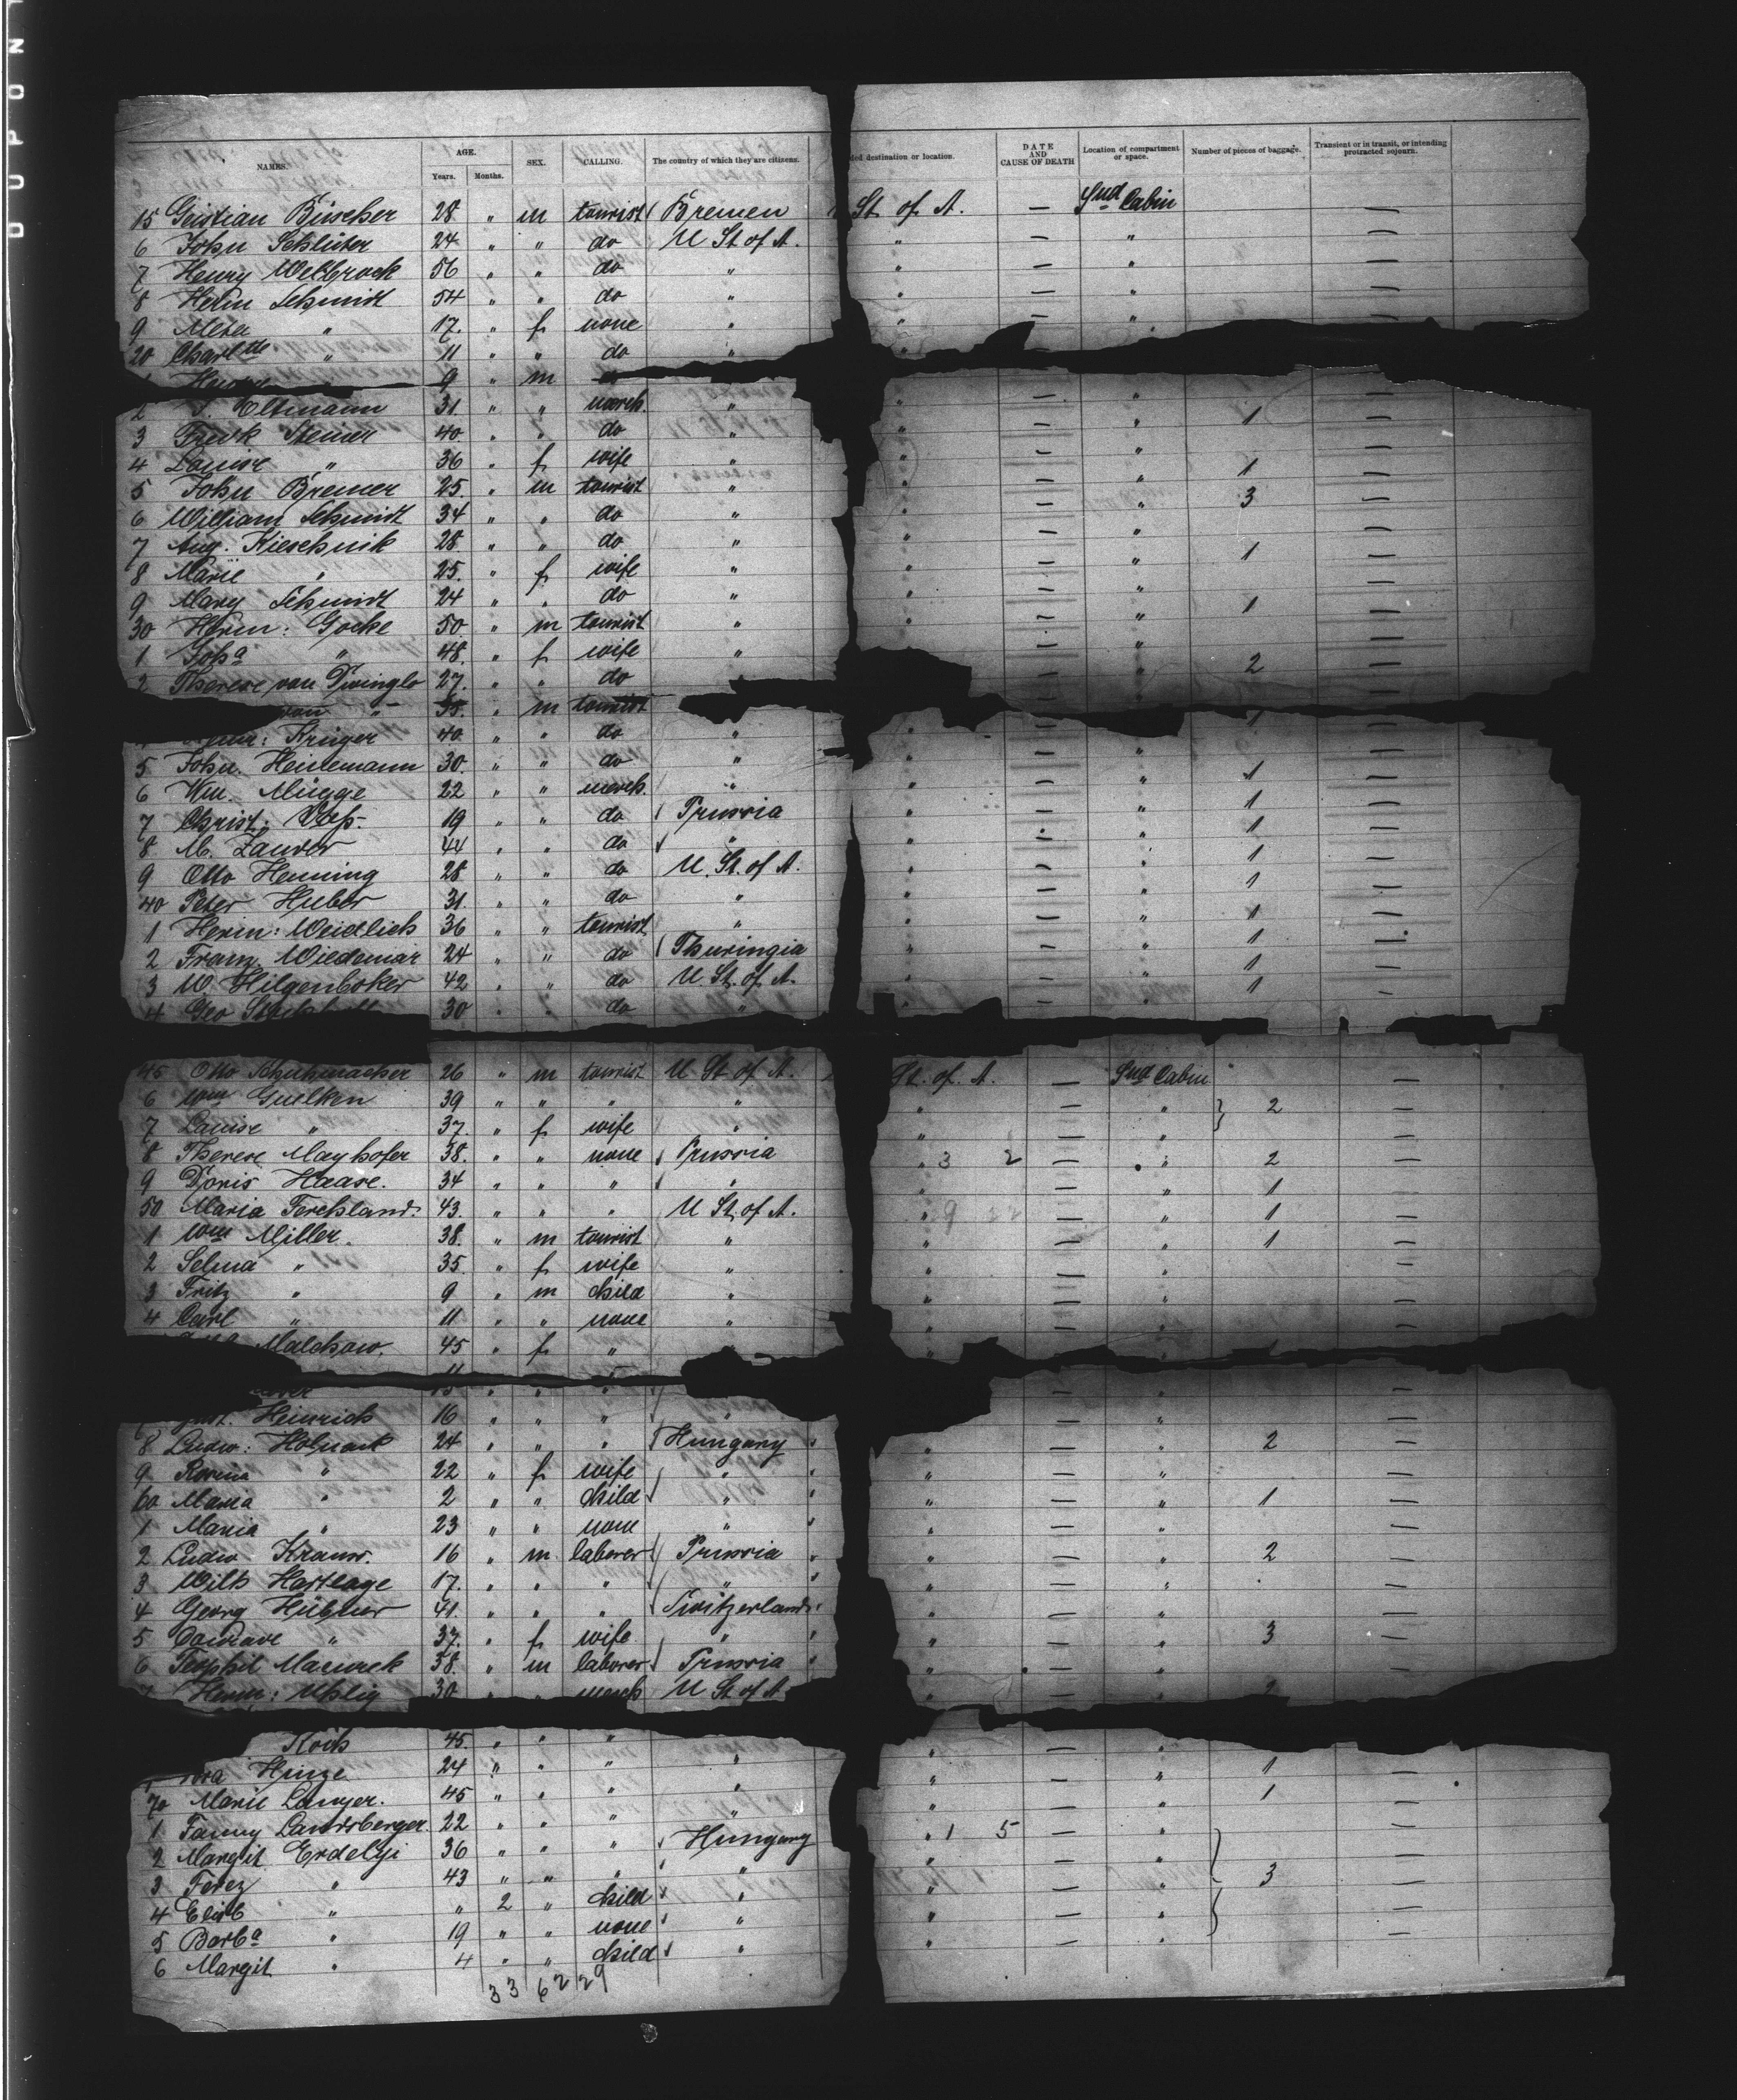 DUPON
NAMES. AGE. Years. Months. SEX. CALLING. The country of which they are citizens. ded destination or location. DATE AND CAUSE OF DEATH Location of compartment or space. Number of pieces of baggage. Transient or in transit, or intending protracted sojourn.
15 Büscher 28 " m tourist Bremen St. of A. — 2nd Cabin —
6 John Schlüter 24 " " do U St. of A. " — " —
7 Henry Welbrock 56 " " do " " — " —
8 Herm Schmidt 54 " " do " " — " —
9 Meta " 17. " f none " " — "
20 Charltte " 11 " " do " "
9 " m
2 Oltmann 31. " " merch. " " — " —
3 Fredk Steiner 40. " " do " " — " 1 —
4 Louise " 36 " f wife " " — " —
5 John Bremer 25. " m tourist " " — " 1 —
6 William Schmidt 34 " " do " " — " 3 —
7 Aug. Kieschnik 28 " " do " " — " —
8 Marie " 25. " f wife " " — " 1 —
9 Mary Schmidt 24 " " do " " — " —
30 Herm: Gocke 50. " m tourist " " — " 1 —
1 Joha " 48. " f wife " " — " —
2 Therese von 27. " " do " — " 2 —
von " 35. " m tourist
Krüger 40 " " do " " — " 1 —
5 John Heidemann 30. " " do " " — " —
6 Wm. Mügge 22 " " merch. " " — " 1 —
7 Christ: 19 " " do Prussia " — " 1 —
8 M. 44 " " do " " — " 1 —
9 Otto Henning 28 " " do U. St. of A. " — " 1 —
40 Peter Huber 31. " " do " " — " 1 —
1 Herm: Weidlich 36 " " tourist " " — " 1 —
2 24 " " do Thuringia " — " 1 —
3 W Hilgenboker 42 " " do U St. of A. " — " 1 —
4 Geo 30 " " do " " — " 1 —
45 Otto Schuhmacher 26 " m tourist U St of A. St. of A. — 2nd Cabin —
6 Wm Guelken 39 " " " " " — " 2 —
7 Louise " 37. " f wife " " — " —
8 Therese Mayhofer 38. " " none Prussia " 3 2 — " 2 —
9 Doris Haase. 34 " " " " " — " 1 —
50 Maria Ferchland. 43. " " " U St. of A. " 9 — " 1 —
1 Wm Miller. 38. " m tourist " " — " 1 —
2 Selma " 35. " f wife " " — " —
3 Fritz " 9 " m child " " — " —
4 Carl " 11 " " none " " — " —
Malchow. 45 " f " " " — "
Heinrich 16 " " " " " — " —
8 Ludw: Holznack 24 " " " Hungary " — " 2 —
9 Rosina " 22 " f wife " " — " —
60 Maria " 2 " " child " " — " 1 —
1 Maria " 23 " " none " " — " —
2 Ludw 16 " m laborer Prussia " — " 2 —
3 Wilh Hartlage 17. " " " " " — " —
4 Georg Hübner 41. " " " Switzerland " — " —
5 " 37. " f wife " " — " 3 —
6 38. " m laborer Prussia " — " —
Herm: Uhlig 30 " " merch U St of A " — "
Koch 45. " " " " — "
Hinze 24 " " " " " — " 1 —
70 Marie Langer. 45 " " " " " — " 1 —
1 Fanny Landsberger. 22 " " " " " 1 5 — " —
2 Margit Erdelyi 36 " " " Hungary " — " —
3 Ferez " 43 " " " " " — " 3 —
4 " " 2 " child " " — " —
5 Barba " 19 " " none " " — " —
6 Margit " 4 " " child "
33 62 29